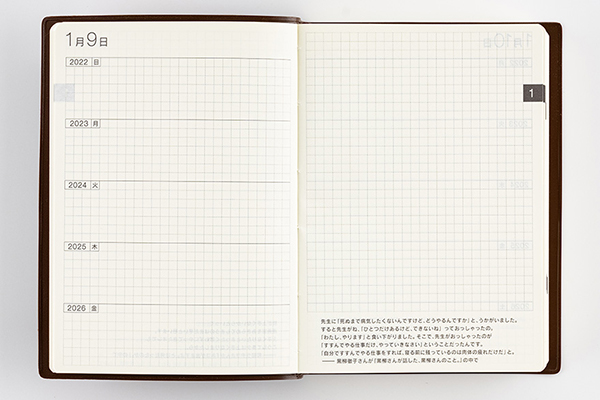 1月9日
2022 日
2023 月
2024 火
2025 木
2026 金
1
先生に「死ぬまで病気したくないんですけど、どうやるんですか」と、うかがいました。
すると先生がね、「ひとつだけあるけど、できないね」っておっしゃったの。
「わたし、やります」と食い下がりました。そこで、先生がおっしゃったのが
「すすんでやる仕事だけ、やっていきなさい」ということだったんです。
「自分ですすんでやる仕事をすれば、寝る前に残っているのは肉体の疲れだけだ」と。
── 黒柳徹子さんが『黒柳さんが話した、黒柳さんのこと。』の中で